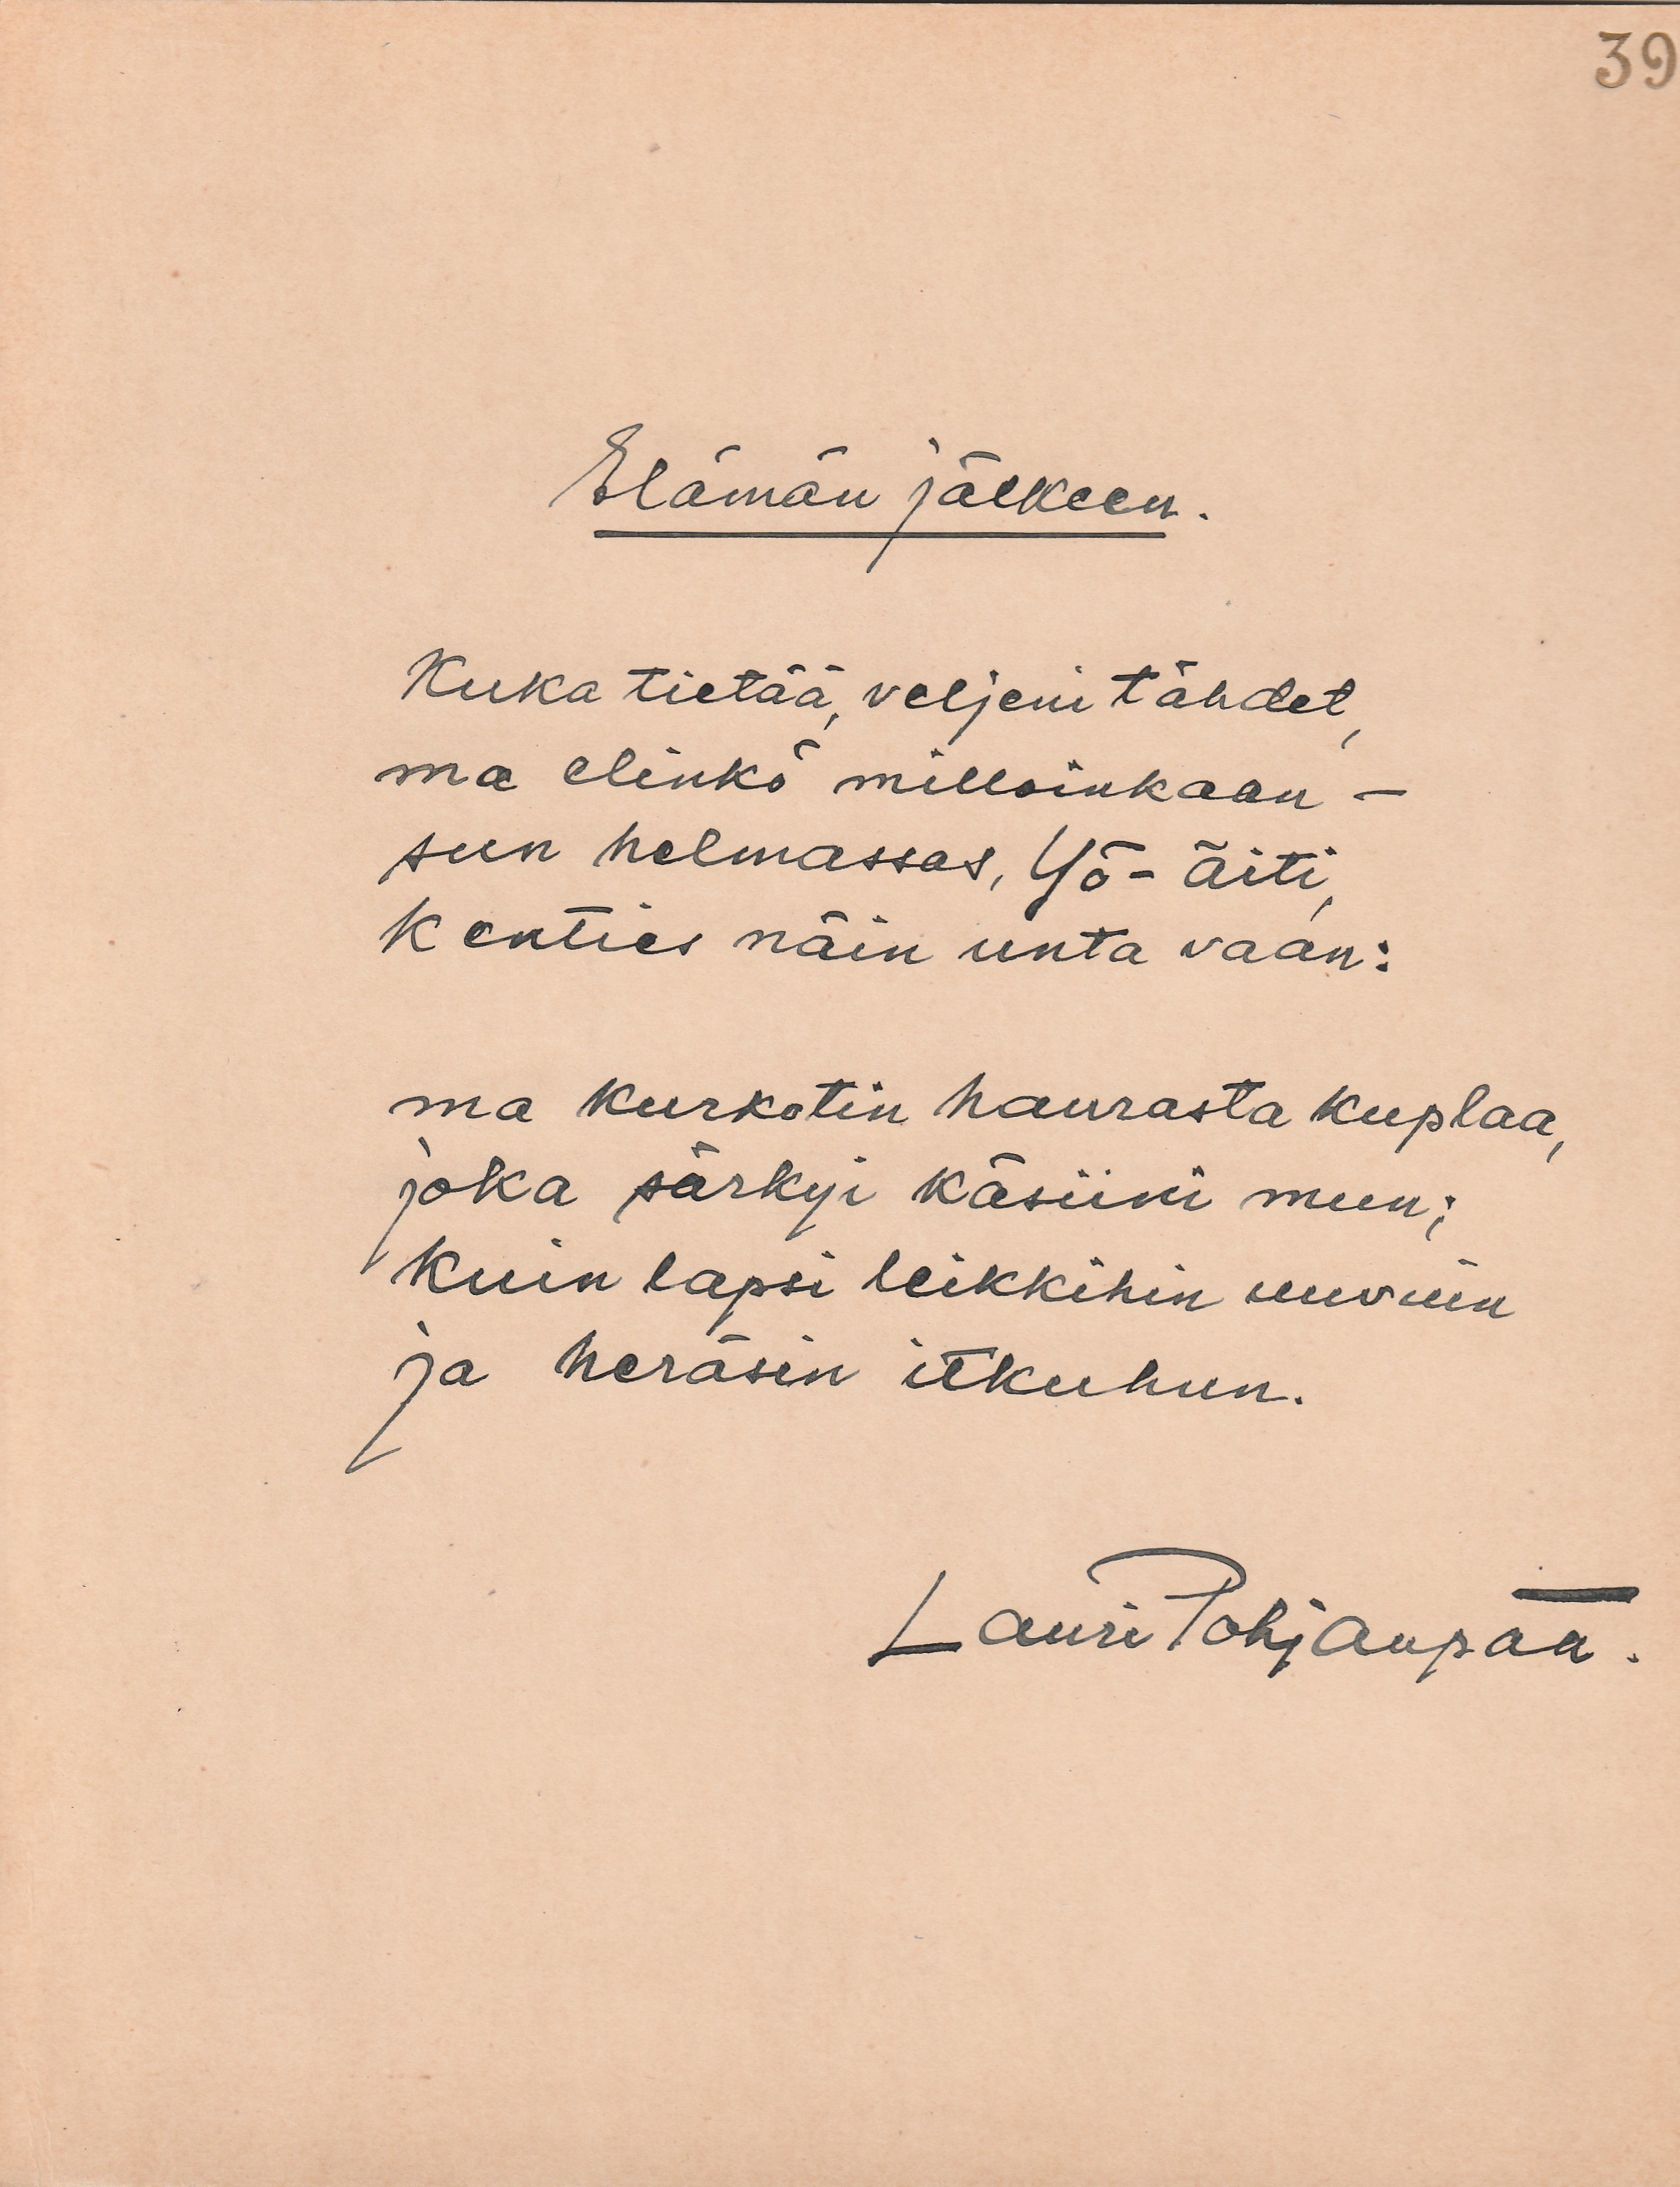 39
Elämän jälkeen.
Kuka tietää, veljeni tähdet,
ma elinkö milloinkaan –
sun helmassas, Yö-äiti,
kenties näin unta vaan:
ma kurkotin haurasta kuplaa,
joka särkyi käsiini mun;
kuin lapsi leikkihin uuvuin
ja heräsin itkuhun.
Lauri Pohjanpää.